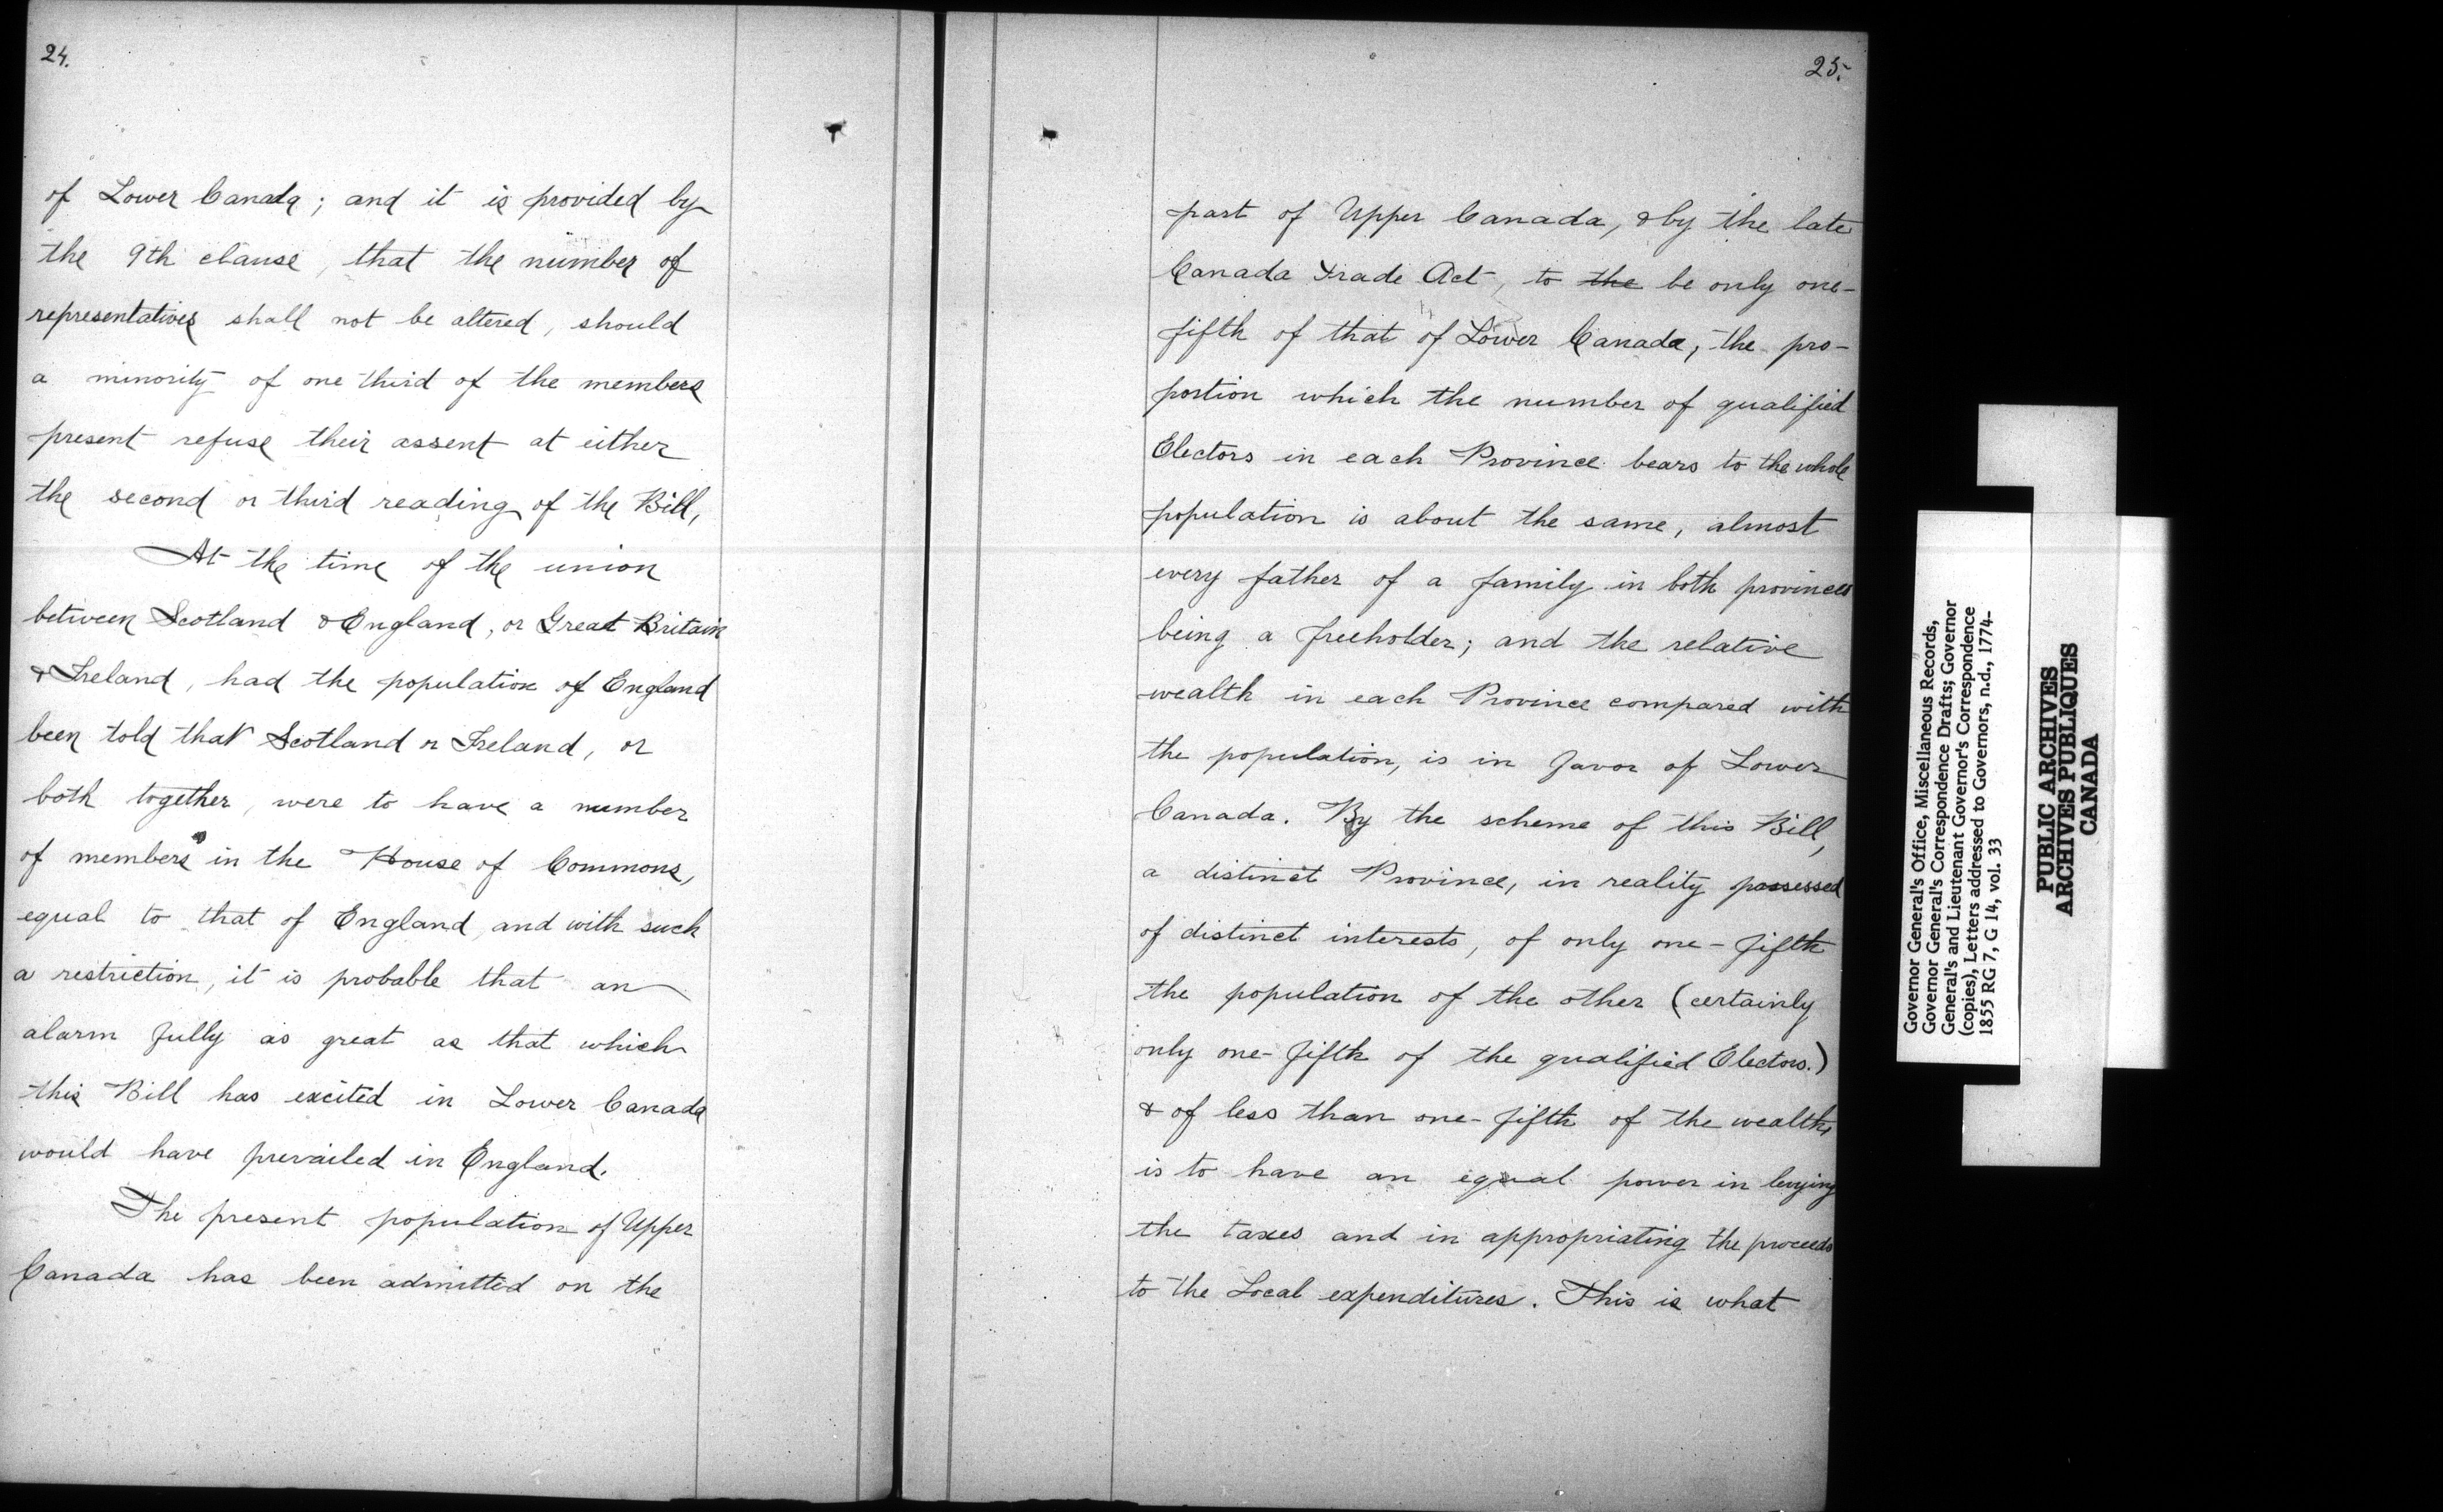 24.
of Lower Canada; and it is provided by
the 9th clause, that the number of
representatives shall not be altered, should
a minority of one third of the members
present refuse their assent at either
the second or third reading of the Bill,
At the time of the union
between Scotland & England, or Great Britain
& Ireland, had the population of England
been told that Scotland or Ireland, or
both together, were to have a number
of members in the House of Commons,
equal to that of England, and with such
a restriction, it is probable that an
alarm fully as great as that which
this Bill has excited in Lower Canada
would have prevailed in England.
The present population of Upper
Canada has been admitted on the
25.
part of Upper Canada, & by the late
Canada Trade Act, to the be only one-
fifth of that of Lower Canada, the pro-
portion which the number of qualified
Electors in each Province bears to the whole
population is about the same, almost
every father of a family in both provinces
being a freeholder; and the relative
wealth in each Province compared with
the population, is in favor of Lower
Canada. By the scheme of this Bill,
a distinct Province, in reality possessed
of distinct interests, of only one-fifth
the population of the other (certainly
only one-fifth of the qualified Electors.)
& of less than one-fifth of the wealth,
is to have an equal power in levying
the taxes and in appropriating the proceeds
to the Local expenditures. This is what
Governor General's Office, Miscellaneous Records,
Governor General's Correspondence Drafts; Governor
General's and Lieutenant Governor's Correspondence
(copies), Letters addressed to Governors, n.d., 1774-
1855 RG 7, G 14, vol. 33
PUBLIC ARCHIVES
ARCHIVES PUBLIQUES
CANADA